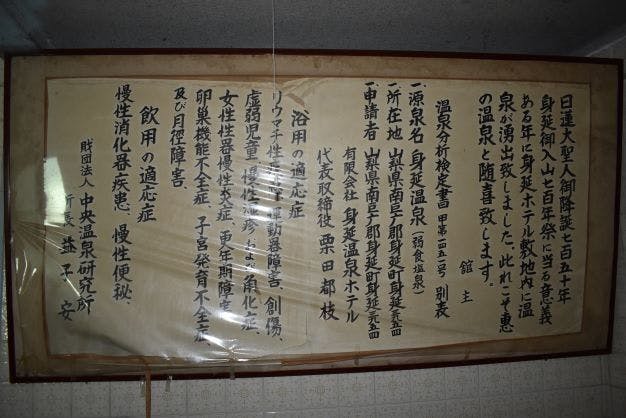 日蓮大聖人御降誕七百五十年
身延御入山七百年祭に当る意義
ある年に身延ホテル敷地内に温
泉が湧出致しました、此れこそ恵
の温泉と随喜致します。
館主
温泉分析検定書四 甲第一四五二号 別表
一源泉名 身延温泉(弱食塩泉)
一所在地 山梨県南巨摩郡身延町身延
一申請者 山梨県南巨摩郡身延町身延
有限会社 身延温泉ホテル
代表取締役 栗田都枝
浴用の適応症
リウマチ性 運動器障害、創傷、
虚弱児童、慢性湿疹および角化症、
女性性器慢性炎症、更年期障害
卵巣機能不全症、子宮発育不全症
及び月経障害、
飲用の適応症
慢性消化器疾患、慢性便秘、
財団法人 中央温泉研究所
所長 益子 安